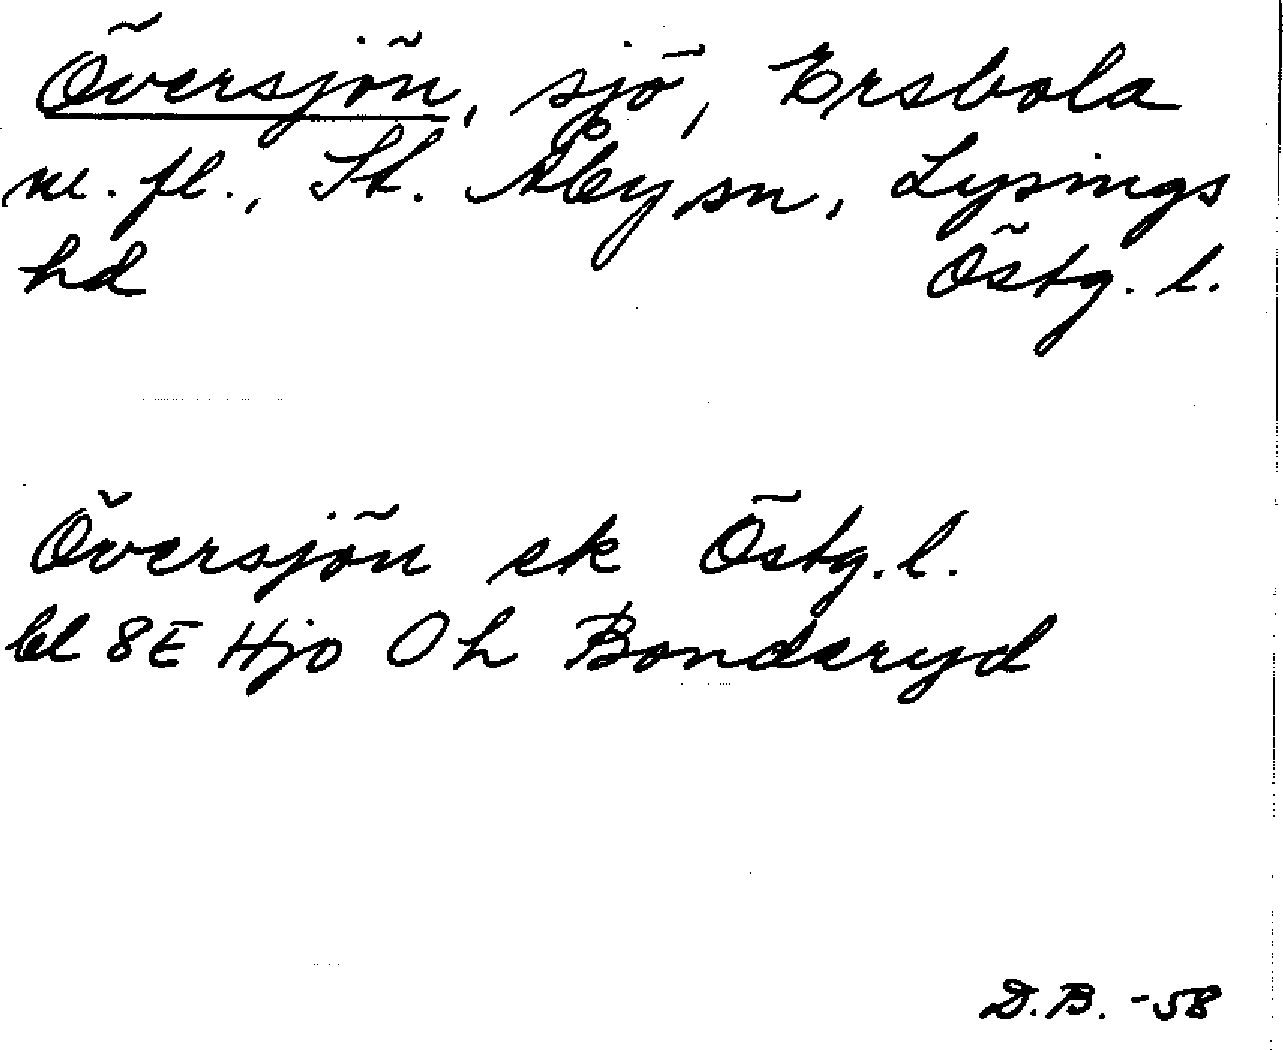 Översjön, sjö, Ersbola
m. fl., St. Åby sn, Lysings
hd Östg. l.
Översjön ek Östg. l.
bl 8E Hjo Oh Bonderyd
D.B. -58